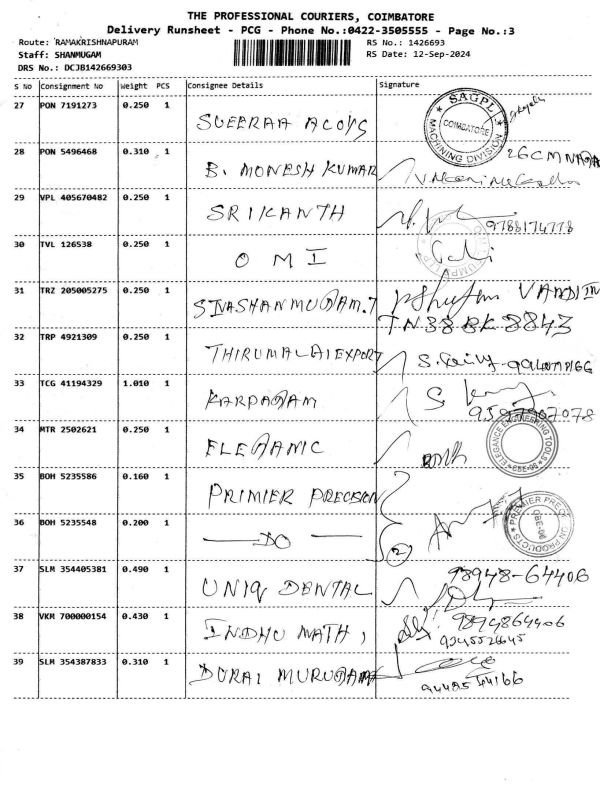 THE PROFESSIONAL COURIERS, COIMBATORE
Delivery Runsheet - PCG - Phone No.:0422-3505555 - Page No.:3
Route: RAMAKRISHNAPURAM RS No.: 1426693
Staff: SHANMUGAM RS Date: 12-Sep-2024
DRS No.: DCJB142669303
S No Consignment No Weight PCS Consignee Details Signature
27 PON 7191273 0.250 1 SUEERAA ALOYS
SAGPL COIMBATORE MACHINING DIVISION
28 PON 5496468 0.310 1 B. MONESH KUMAR
29 VPL 405670482 0.250 1 SRIKANTH 9788174778
30 TVL 126538 0.250 1 OMI
31 TRZ 205005275 0.250 1 SIVASHANMUGAM.T
TN38BK8843
32 TRP 4921309 0.250 1 THIRUMALAI EXPORT
33 TCG 41194329 1.010 1 KARPAGAM S
9597907078
34 MTR 2502621 0.250 1 ELEGANIC
ELEGANCE ENGINEERING TOOLS CBE-06
35 BOH 5235586 0.160 1 PRIMIER PRECISION
36 BOH 5235548 0.200 1 —DO— 2
PREMIER PRECISION PRODUCTS CBE-06
37 SLM 354405381 0.490 1 UNIQ DENTAL 98948-64406
38 VKM 700000154 0.430 1 INDHU MATHI 9894864406
9345526645
39 SLM 354387833 0.310 1 DURAI MURUGAN
9448544166